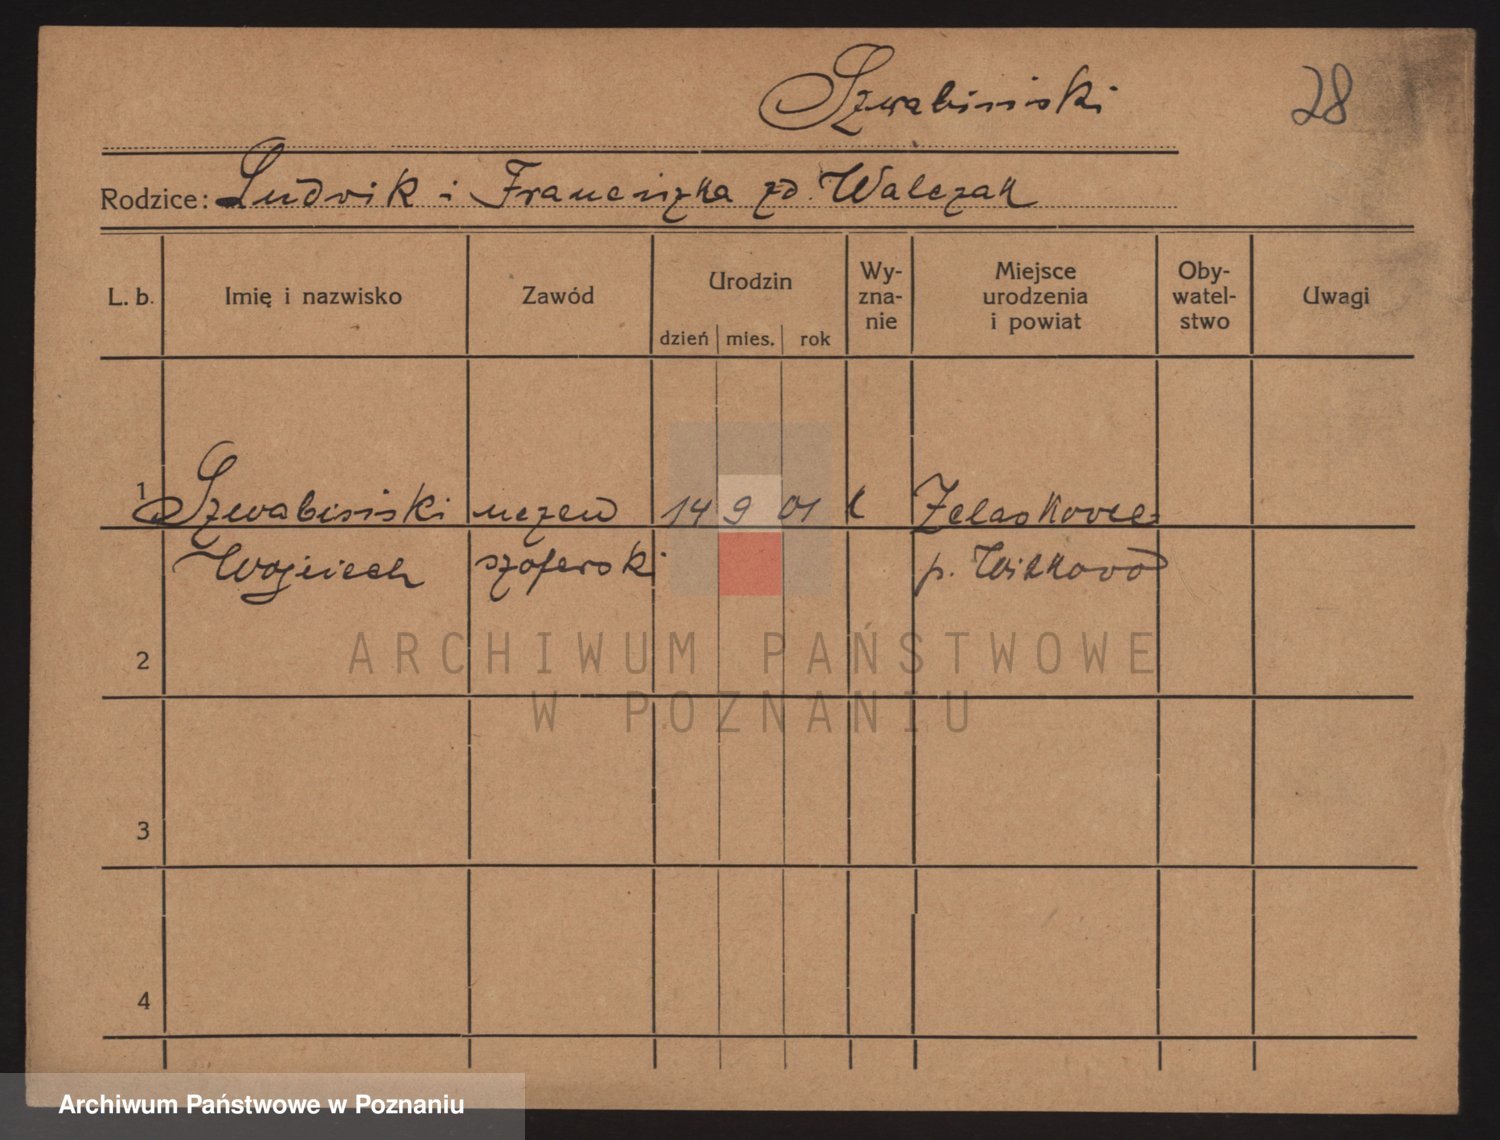 Szwabiński
28
Rodzice: Ludwik i Franciszka zd. Walczak
L. b.
Imię i nazwisko
Zawód
Urodzin
dzień mies. rok
Wy-
zna-
nie
Miejsce
urodzenia
i powiat
Oby-
watel-
stwo
Uwagi
1 Szwabiński uczeń 14 9 01 k Żelaskowo
Wojciech szoferski p. Witkowo
2
3
4
ARCHIWUM PAŃSTWOWE
W POZNANIU
Archiwum Państwowe w Poznaniu